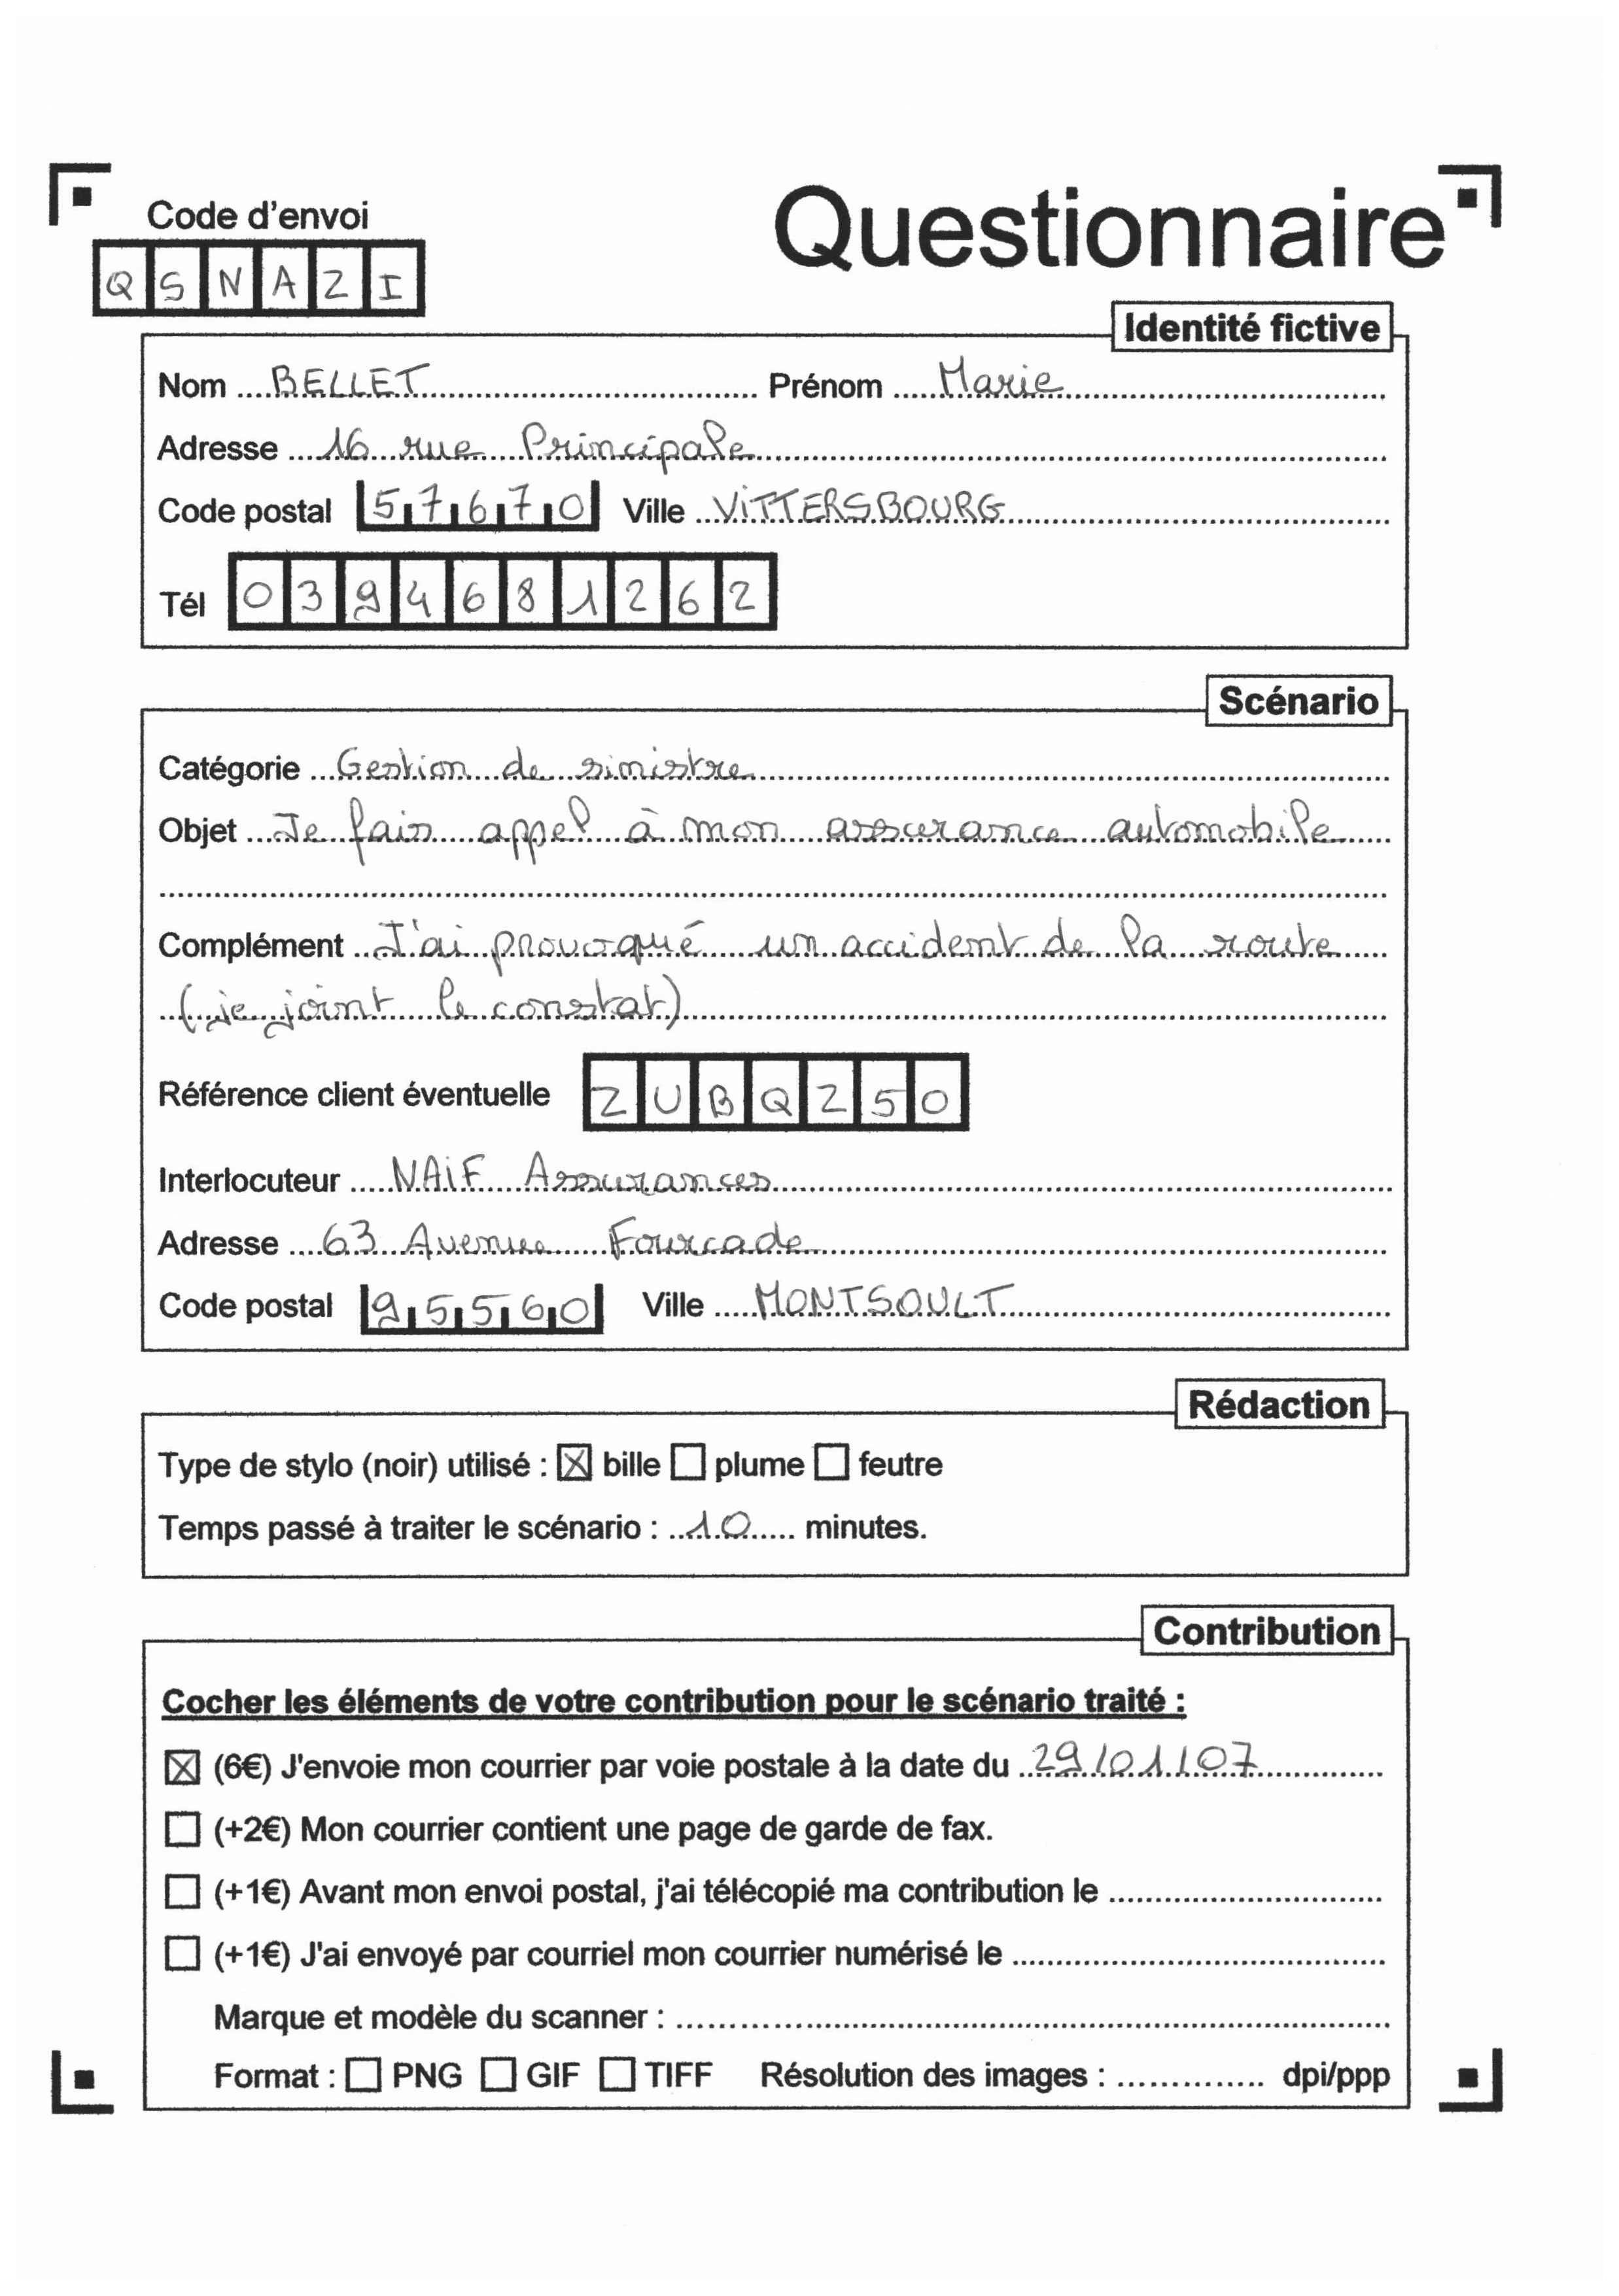 Code d'envoi
Questionnaire
QSNAZI
Identité fictive
Nom BELLET Prénom Marie
Adresse 16 rue Principale
Code postal 57670 Ville ViTTERSBOURG
Tél 0394681262
Scénario
Catégorie Gestion de sinistre
Objet Je fais appel à mon assurance automobile
Complément J'ai provoqué un accident de la route
(je joint le constat)
Référence client éventuelle ZUBQZ50
Interlocuteur NAiF Assurances
Adresse 63 Avenue Fourcade
Code postal 95560 Ville MONTSOULT
Rédaction
Type de stylo (noir) utilisé : ☒ bille ☐ plume ☐ feutre
Temps passé à traiter le scénario : 10 minutes.
Contribution
Cocher les éléments de votre contribution pour le scénario traité :
☒ (6€) J'envoie mon courrier par voie postale à la date du 29/01/07
☐ (+2€) Mon courrier contient une page de garde de fax.
☐ (+1€) Avant mon envoi postal, j'ai télécopié ma contribution le
☐ (+1€) J'ai envoyé par courriel mon courrier numérisé le
Marque et modèle du scanner :
Format : ☐ PNG ☐ GIF ☐ TIFF Résolution des images : dpi/ppp